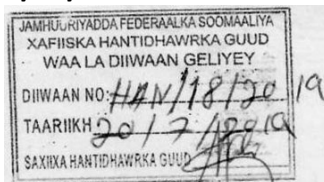 JAMHUURIYADDA FEDERAALKA SOOMAALIYA
XAFIISKA HANTIDHAWRKA GUUD
WAA LA DIIWAAN GELIYEY
DIIWAAN NO: HAN/18/2019
TAARIIKH 20/7/2019
SAXIIXA HANTIDHAWRKA GUUD